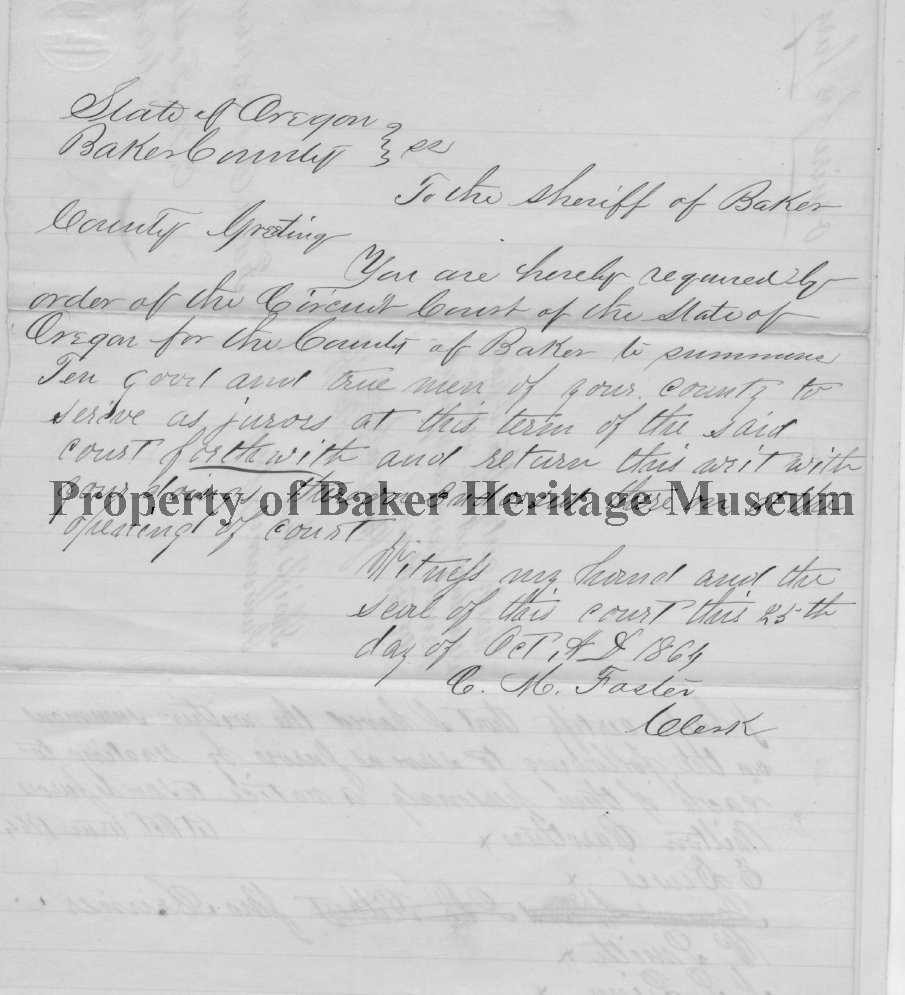 State of Oregon
Baker County } ss
To the Sheriff of Baker
County Greeting
You are hereby required by
order of the Circuit Court of the State of
Oregon for the County of Baker to summons
Ten good and true men of your county to
serve as jurors at this term of the said
court forthwith and return this writ with
your doings
Property of Baker Heritage Museum
opening of court
Witness my hand and the
seal of this court this 25th
day of Oct A D 1864
C. M. Foster
Clerk